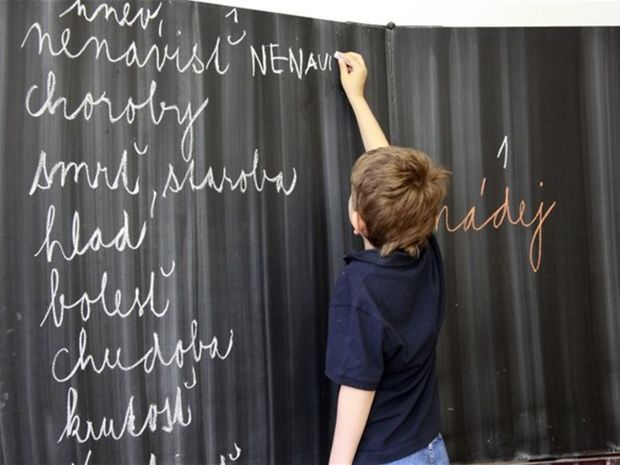 hnev,
nenávisť NENAVI
choroby
smrť, staroba
hlad
bolesť
chudoba
krutosť
1
nádej